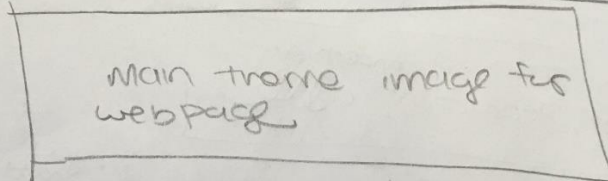 Main theme image for
webpage